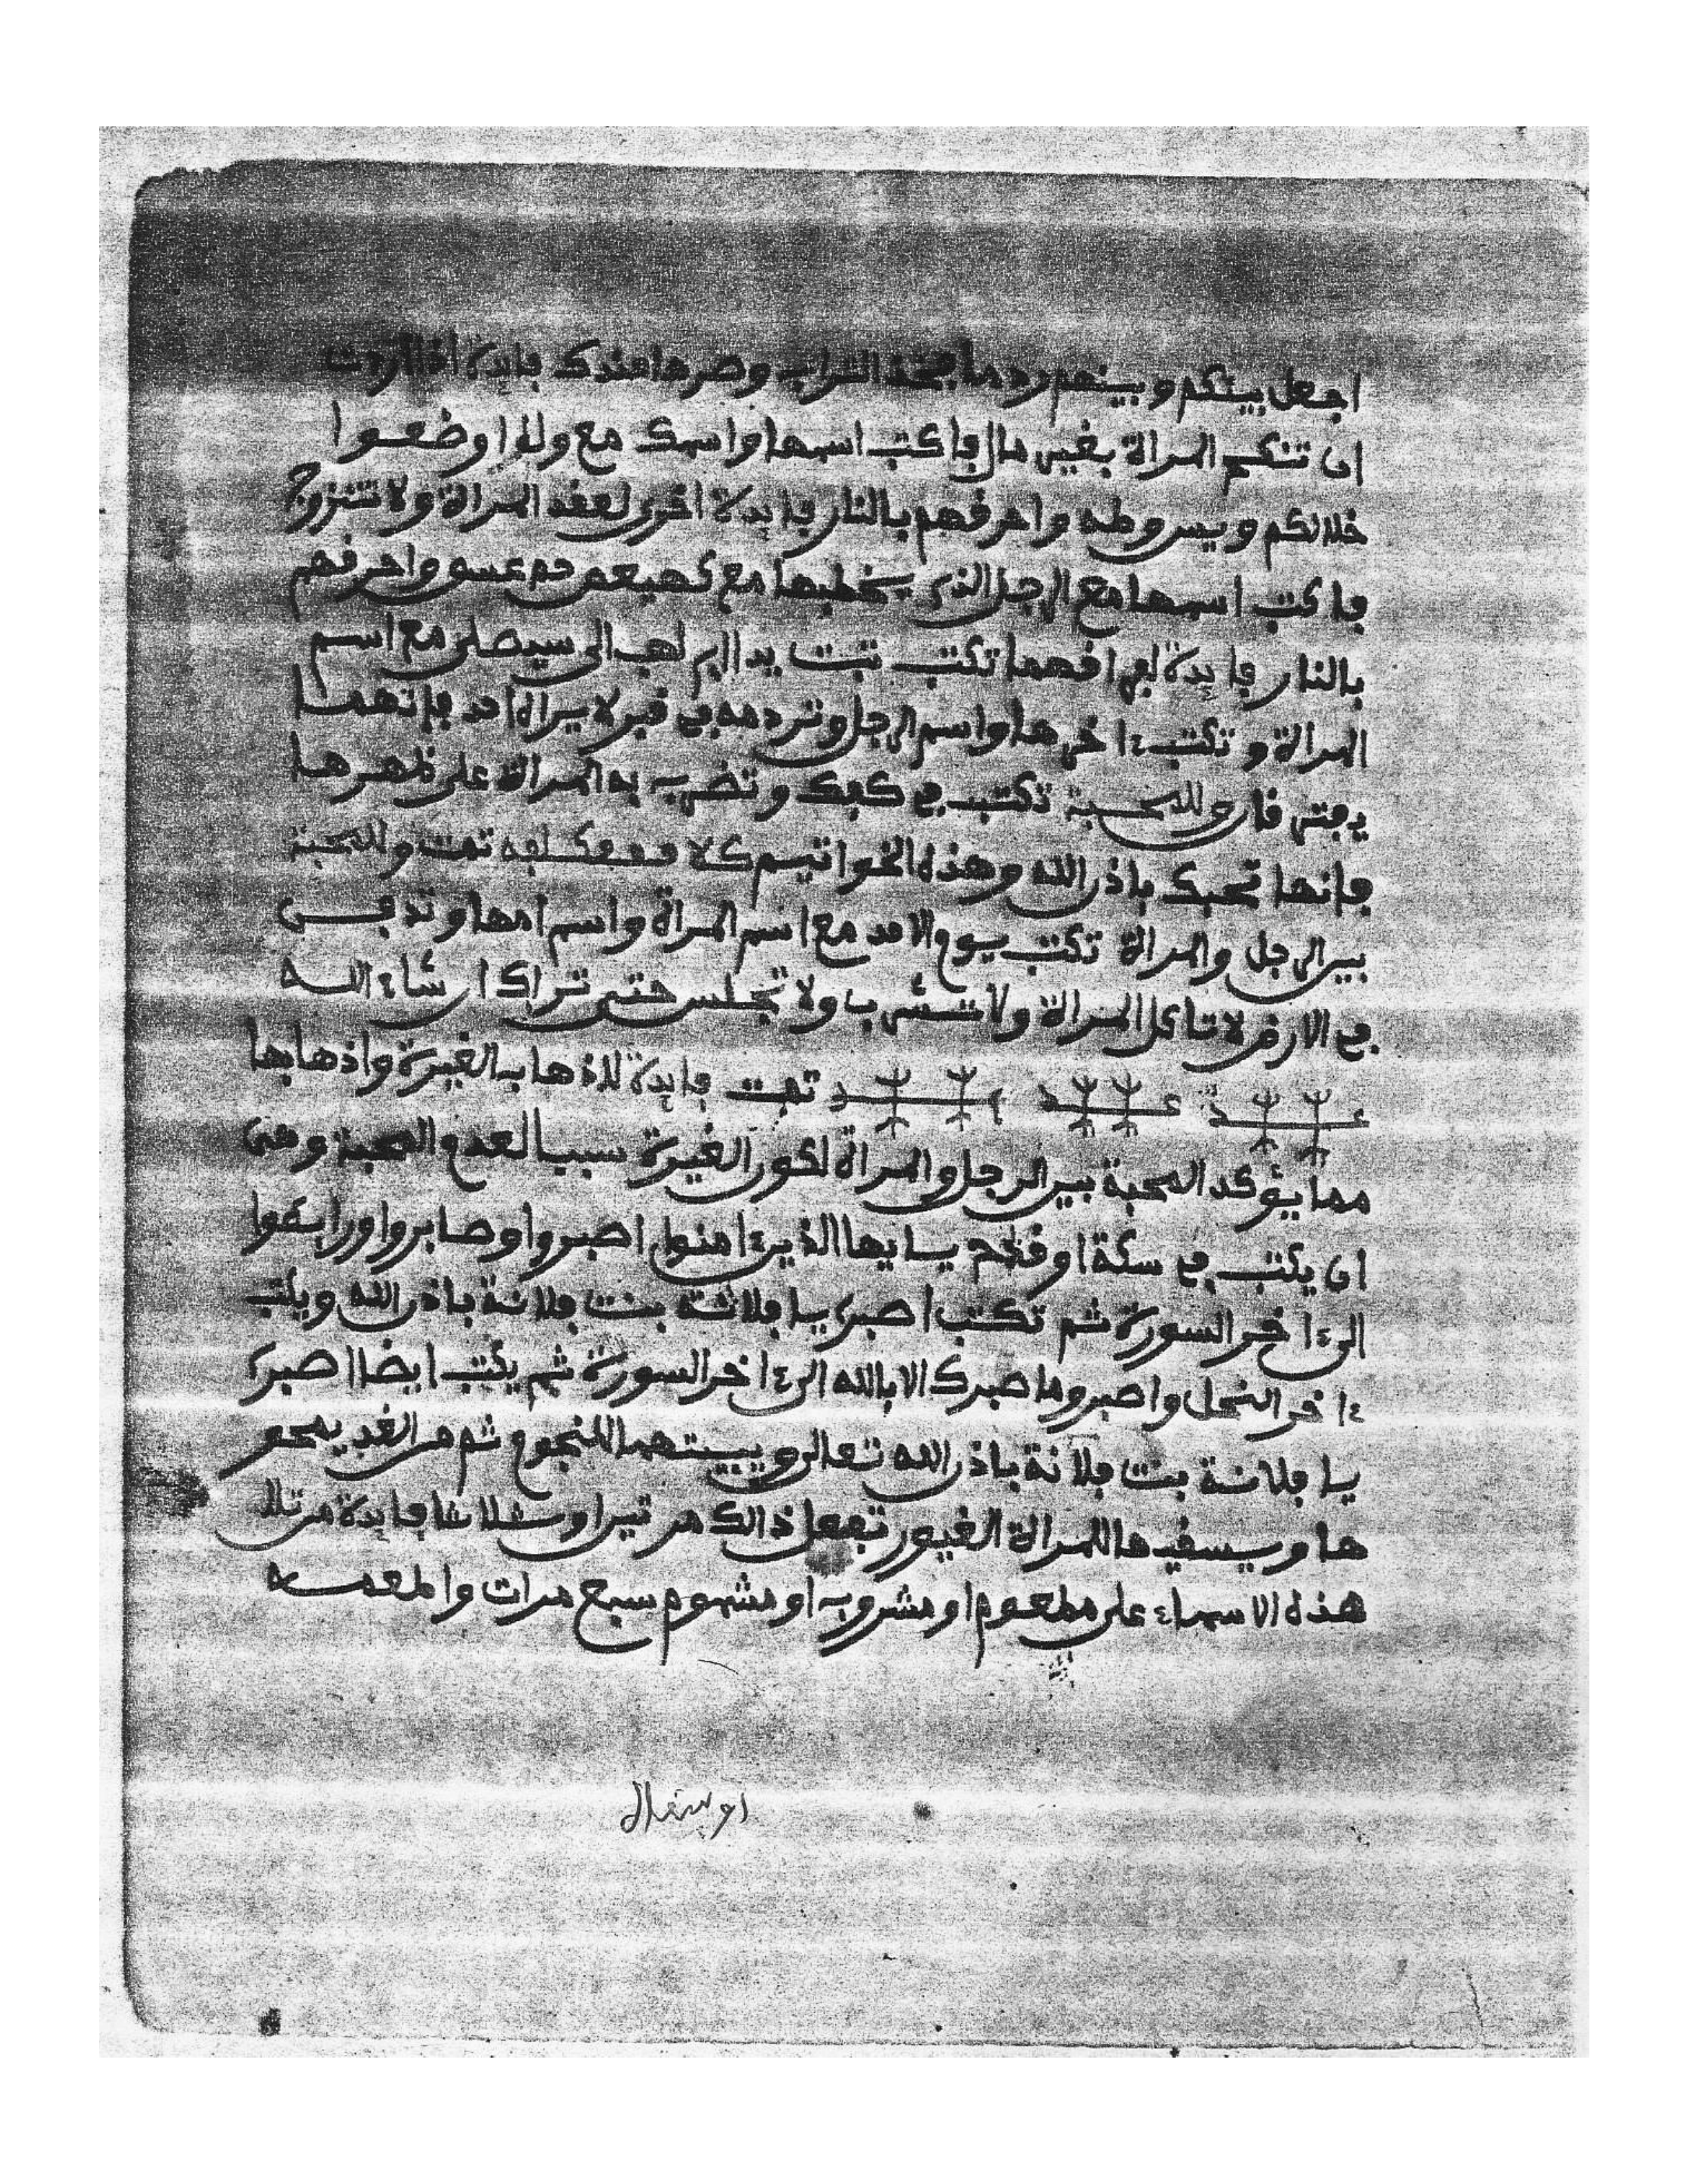 اجعل بينكم وبينهم ردما بخذ التراب وصرها عندك فايدة اذا اردت
ان تنكح المراة بغير مال فاكتب اسمها واسمك مع ولاوضعوا
خلالكم ويس وطه واحرقهم بالنار فايدة اخرى لعقد المراة ولا تتزوج
فاكتب اسمها مع الرجل الذي يخطبها مع كهيعص حم عسق واحرقهم
بالنار فايدة لفراقهما تكتب تبت يدا ابي لهب الى سيصلى مع اسم
المراة وتكتب ءاخرها واسم الرجل وتردمه في قبر لا يراه احد فانهما
يفترقان للمحبة تكتب في كفك وتضرب به المراة على ظهرها
فانها تحبك باذن الله وهذه الخواتيم تمت وللمحبة
بين الرجل والمراة تكتب يوم الاحد مع اسم المراة واسم امها وتدفن
في الارض لا تاكل المراة ولا تشرب ولا تجلس حتى تراك ان شاء الله
تمت فايدة للذهاب الغيرة واذهابها
مما يؤكد المحبة بين الرجل والمراة لكون الغيرة سببا لعدم المحبة وهي
ان يكتب في سكة او قدح يايها الذين ءامنوا اصبروا وصابروا ورابطوا
الى ءاخر السورة ثم تكتب اصبري يا فلانة بنت فلانة باذن الله ويكتب
ءاخر النحل واصبر وما صبرك الا بالله الى ءاخر السورة ثم يكتب ايضا اصبري
يا فلانة بنت فلانة باذن الله تعالى ويبيتهما للنجوم ثم من الغد يمحو
ها ويسقيها للمراة الغيور تفعل ذالك مرتين او ثلاثا فايدة من تلا
هذه الاسماء على مطعوم او مشروب او مشموم سبع مرات واطعمه